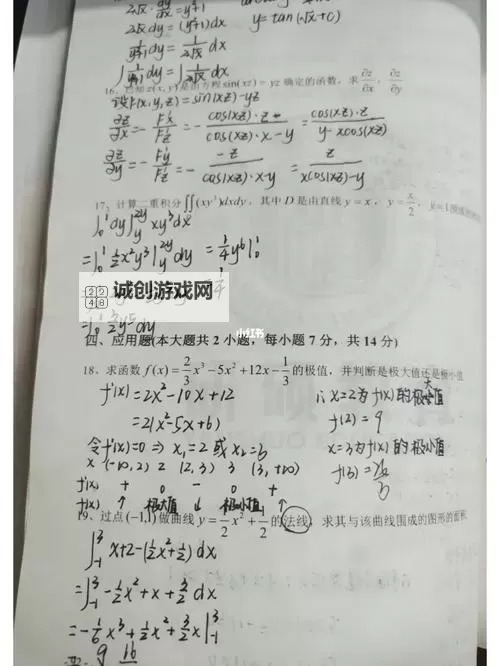 2√x · dy/dx = y²+1
2√x dy = (y²+1)dx y=tan(√x+C)
1/(y²+1) dy = 1/(2√x) dx
∫ 1/(y²+1) dy = ∫ 1/(2√x) dx
16、已知 z(x, y) 是由方程 sin(xz) = yz 确定的函数，求 ∂z/∂x，∂z/∂y
设F(x,y,z)=sin(xz)-yz
∂z/∂x = - F'x/F'z = - cos(xz)·z/(cos(xz)·x-y) = cos(xz)·z/(y-xcos(xz))
∂z/∂y = - F'y/F'z = - -z/(cos(xz)·x-y) = z/(xcos(xz)-y)
17、计算二重积分 ∬(xy³)dxdy，其中 D 是由直线 y = x，y = x/2，y=1围成的
∫₀¹dy∫_y^{2y} xy³dx
=∫₀¹ ½x²y³|_y^{2y} dy = ¼y⁶|₀¹
诚创游戏网
=∫₀¹ 3/2 y⁵ dy
小红书
四、应用题(本大题共 2 小题，每小题 7 分，共 14 分)
18、求函数 f(x) = 2/3 x³ - 5x² + 12x - 1/3 的极值，并判断是极大值还是极小值
f'(x) = 2x²-10x+12 ∴ x=2为f(x)的极大值
=2(x²-5x+6) f(2)=9
令f'(x)=0 ⇒ x₁=2 或 x₂=6 x=3为f(x)的极小值
x (-∞,2) 2 (2,3) 3 (3,+∞) f(3)=26/3
f'(x) + 0 - 0 +
f(x) ↑ 极大值 ↓ 极小值 ↑
19、过点 (-1,1) 做曲线 y = 1/2 x² + 1/2 的法线，求其与该曲线围成的图形的面积
∫₋₁³ x+2-(½x²+½) dx
=∫₋₁³ -½x²+x+3/2 dx
=-1/6 x³+½x²+3/2 x|₋₁³